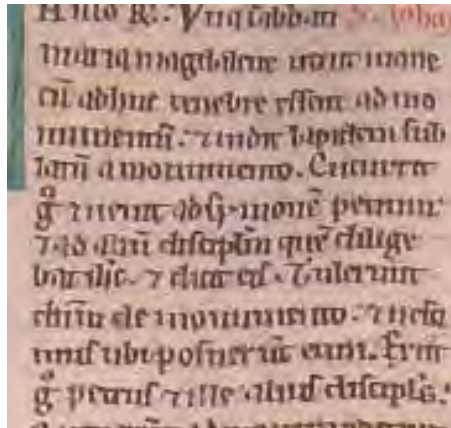 maria magdalene venit mane
cũ adhuc tenebre essent ad mo
numentũ. ⁊ uidit lapidem sub
latũ a monumento. Cucurrit
g̊ ⁊ uenit ad sy monẽ petrum
⁊ ad aliũ discipłm quẽ dilige
bat ihc̃. ⁊ dicit eis. Tulerunt
dñm de monumento. ⁊ nesci
mus ubi posuerũt eum. Exiit
g̊ petrus ⁊ ille alius discipłs.